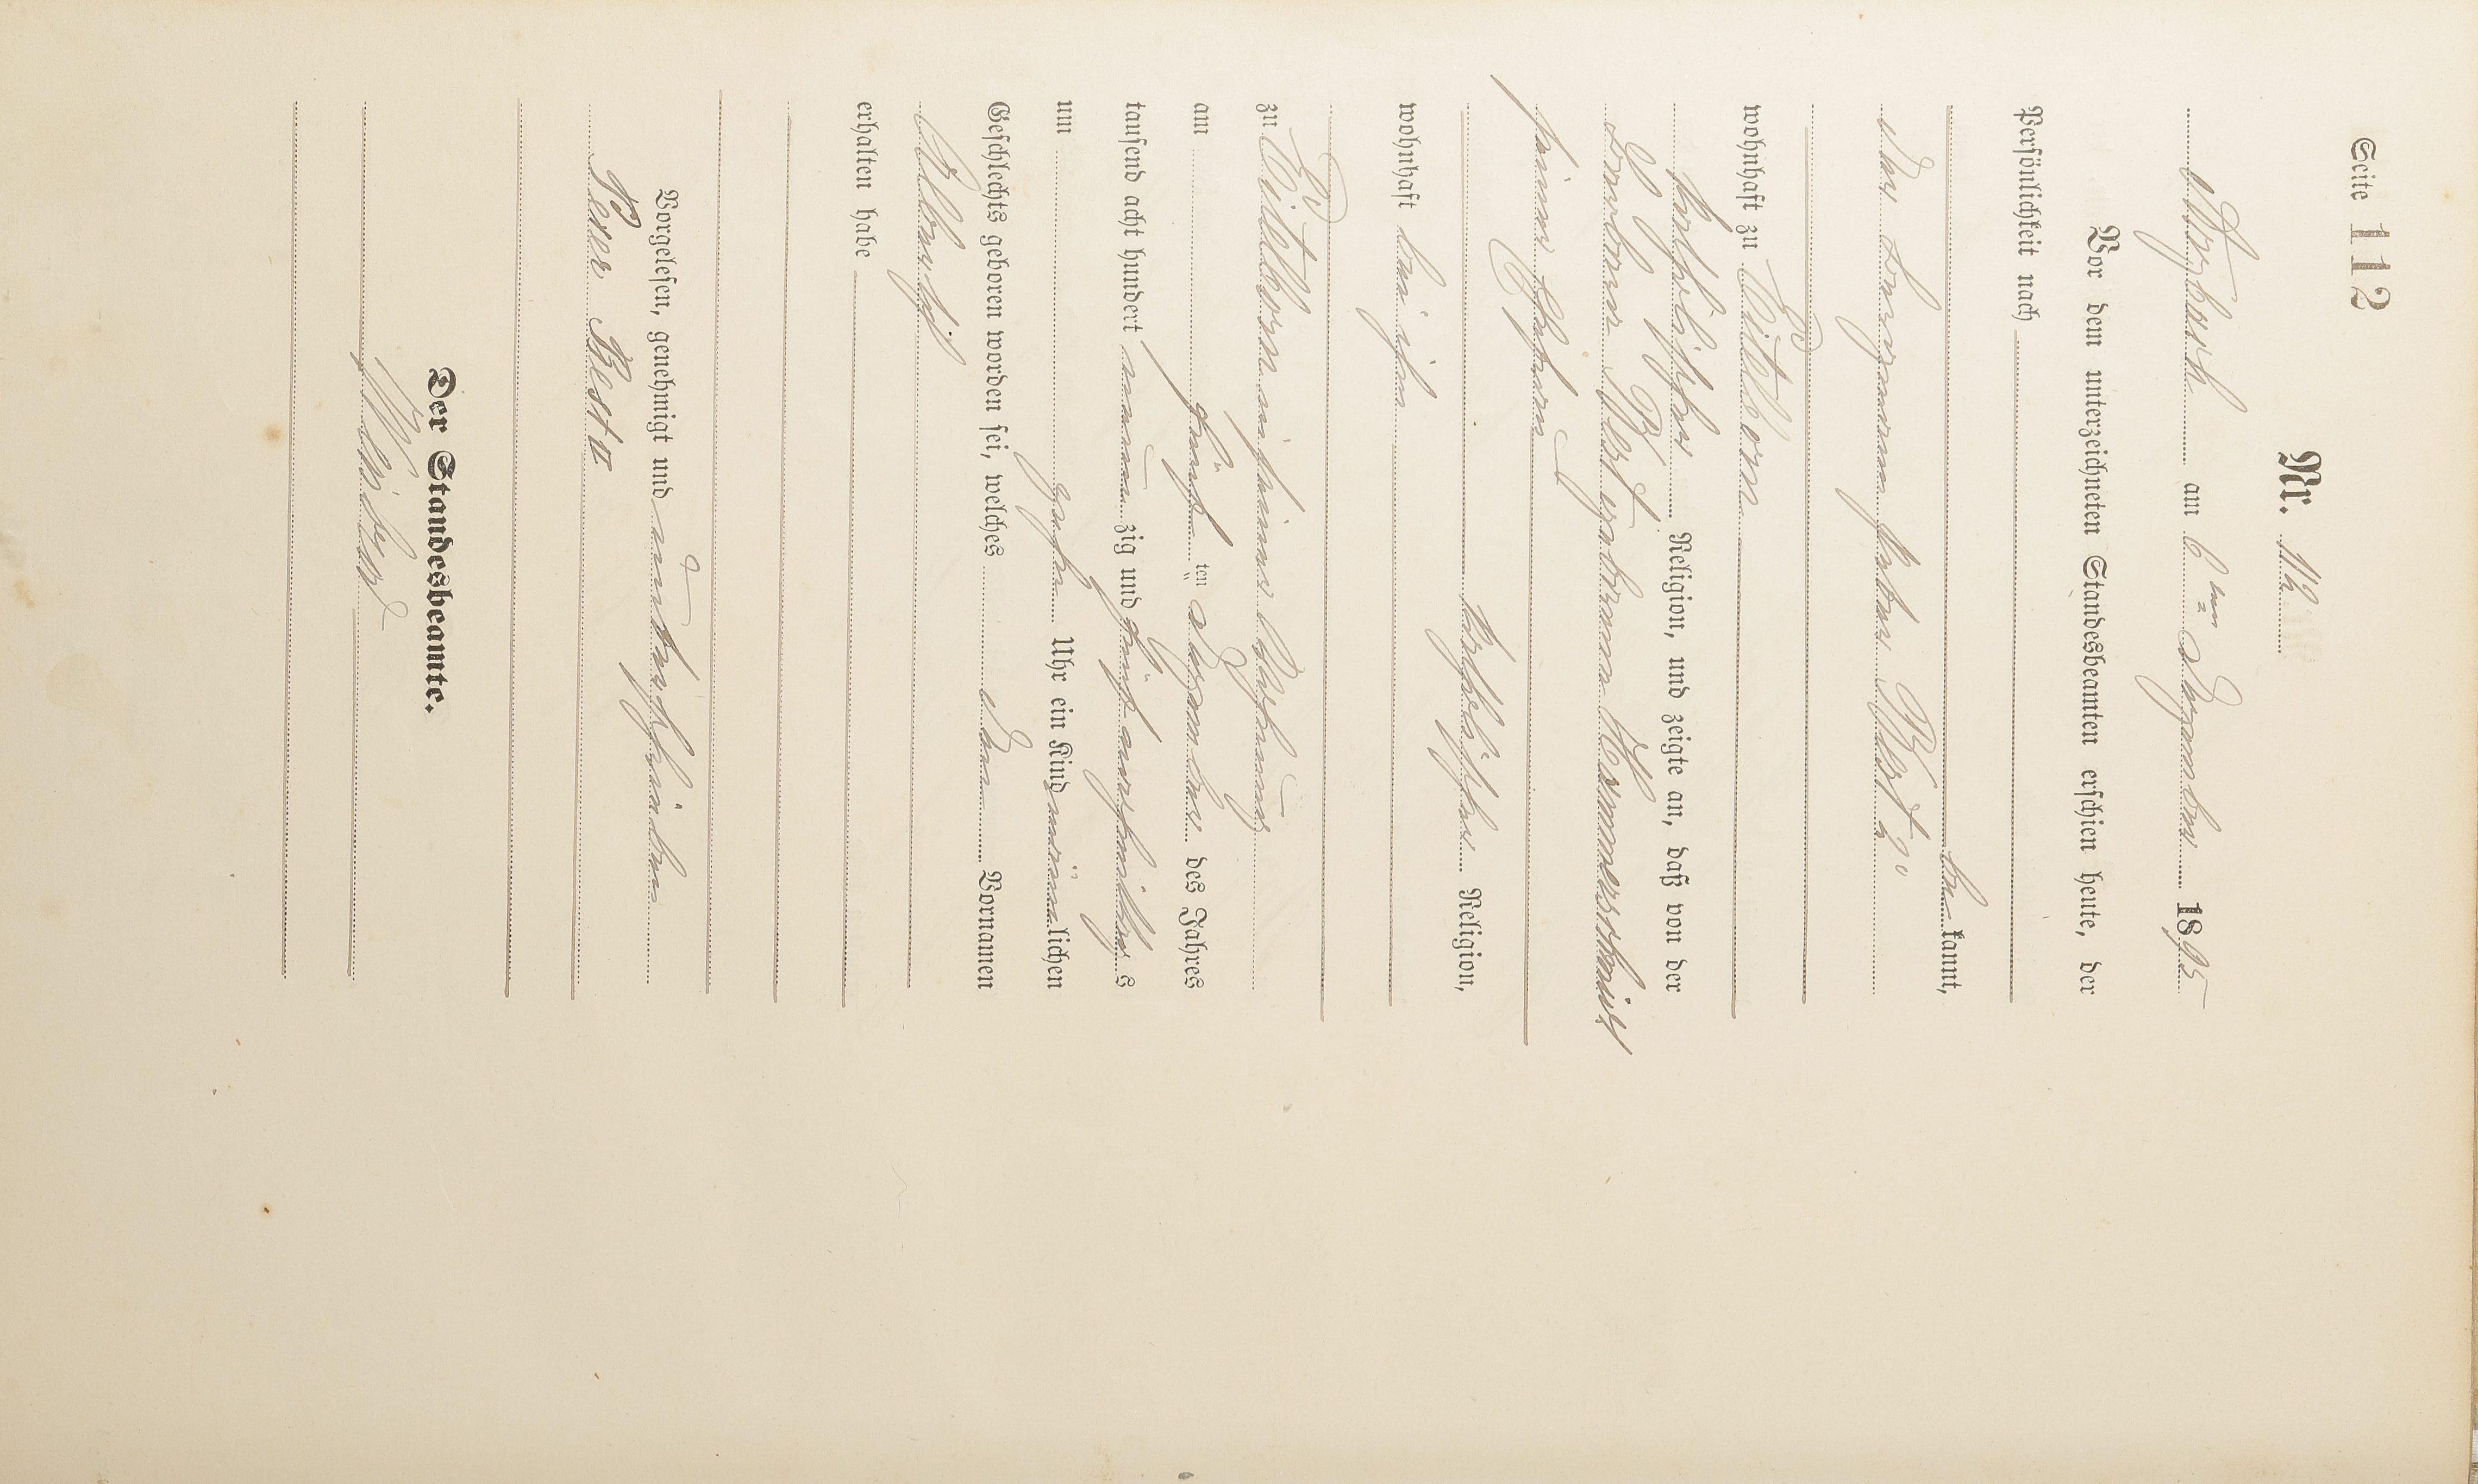 Seite 112
Nr.
Arzbach am 6ten Dezember 1895
Vor dem unterzeichneten Standesbeamten erschien heute, der
Persönlichkeit nach
bekannt,
der Bergmann Peter Best 2r
wohnhaft zu Eitelborn
katholischer Religion, und zeigte an, daß von der
Barbara Best geborenen
seiner Ehefrau
katholischer Religion,
wohnhaft bei ihm
zu Eitelborn in seiner Wohnung
am fünften Dezember des Jahres
tausend acht hundert neunzig und fünf nachmittags
um zehn Uhr ein Kind männlichen
Geschlechts geboren worden sei, welches den Vornamen
erhalten habe
Vorgelesen, genehmigt und unterschrieben
Peter Best II
Der Standesbeamte.